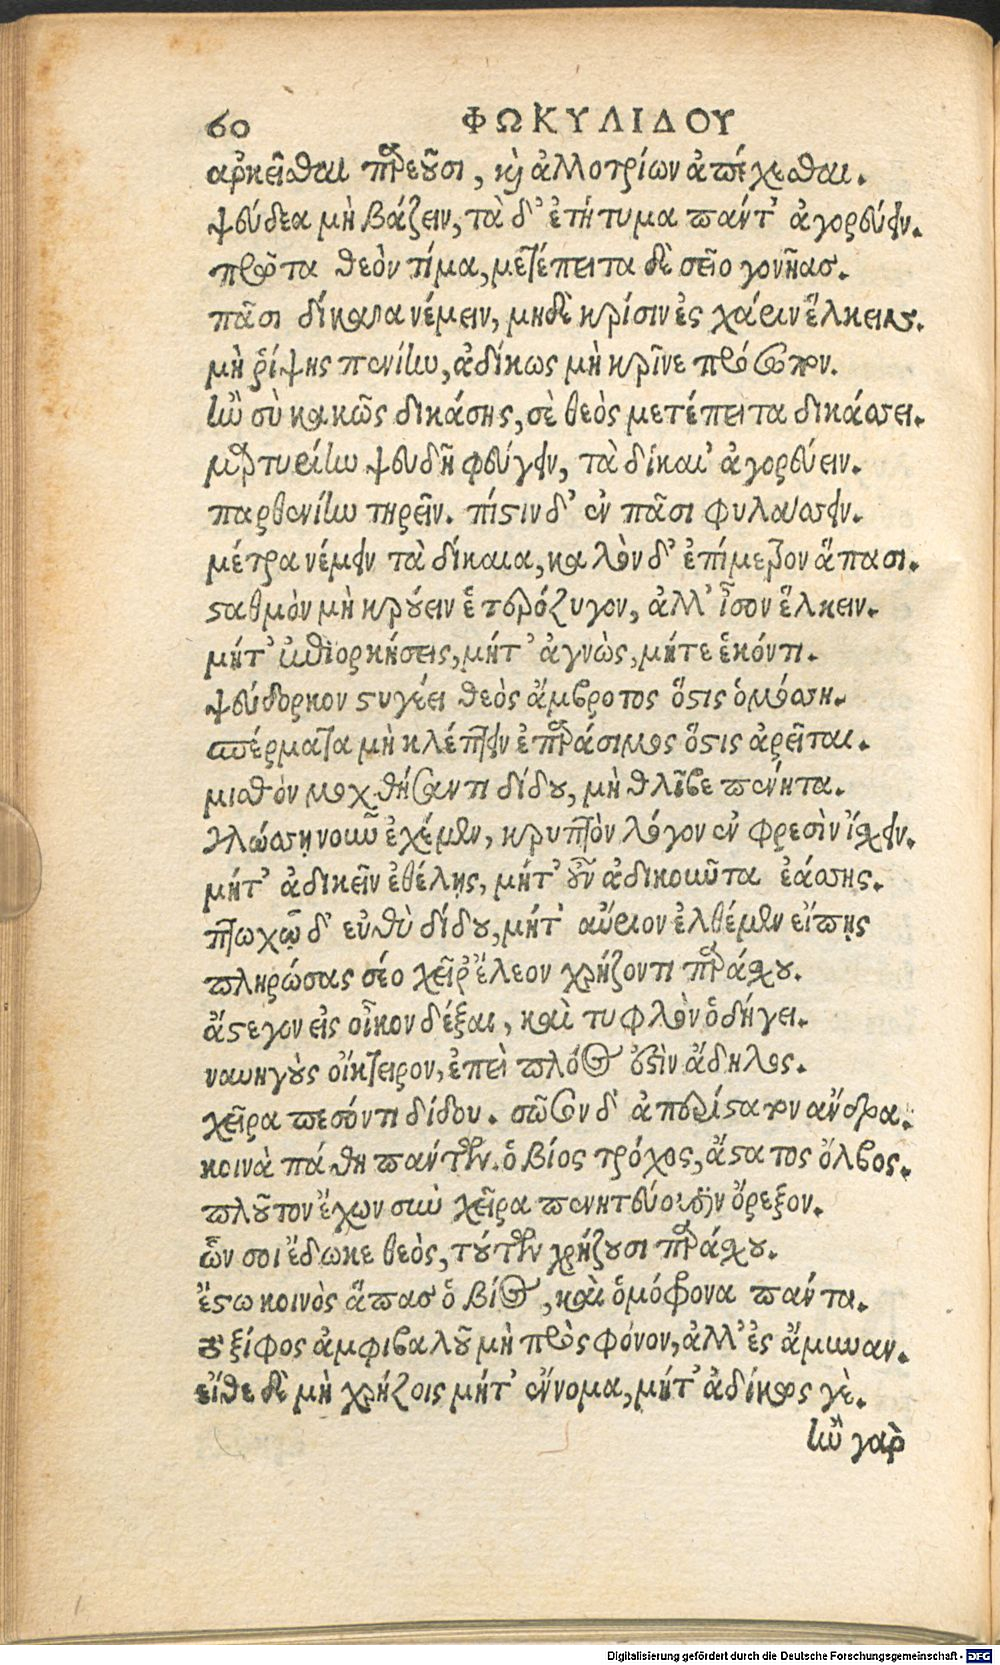 60 ΦΩΚΥΛΙΔΟΥ
ἀρκεῖσθαι παρεοῦσι, καὶ ἀλλοτρίων ἀπέχεσθαι.
ψεύδεα μὴ βάζειν, τὰ δ' ἐτήτυμα πάντ' ἀγορεύειν.
πρῶτα θεὸν τίμα, μετέπειτα δὲ σεῖο γονῆας.
πᾶσι δίκαια νέμειν, μηδὲ κρίσιν ἐς χάριν ἕλκειν.
μὴ ῥίψης πενίην, ἀδίκως μὴ κρῖνε πρόσωπον.
ἢν σὺ κακῶς δικάσης, σὲ θεὸς μετέπειτα δικάσσει.
μαρτυρίην ψευδῆ φεύγειν, τὰ δίκαι' ἀγορεύειν.
παρθενίην τηρεῖν. πίστιν δ' ἐν πᾶσι φυλάσσειν.
μέτρα νέμειν τὰ δίκαια, καλὸν δ' ἐπίμετρον ἅπασι.
σταθμὸν μὴ κρούειν ἑτερόζυγον, ἀλλ' ἶσον ἕλκειν.
μήτ' ἐπιορκήσεις, μήτ' ἀγνὼς, μήτε ἑκόντι.
ψεύδορκον στυγέει θεὸς ἄμβροτος ὅστις ὁμόσση.
σπέρματα μὴ κλέπτειν ἐπαράσιμος ὅστις ἀρεῖται.
μισθὸν μοχθήσαντι δίδου, μὴ θλῖβε πένητα.
γλώσση νοῦν ἐχέμεν, κρυπτὸν λόγον ἐν φρεσὶν ἴσχειν.
μήτ' ἀδικεῖν ἐθέλης, μήτ' οὖν ἀδικοῦντα ἐάσσης.
πτωχῷ δ' εὐθὺ δίδου, μήτ' αὔριον ἐλθέμεν εἴπης
πληρώσας σέο χεῖρ' ἔλεον χρήζοντι παράσχου.
ἄστεγον εἰς οἶκον δέξαι, καὶ τυφλὸν ὁδήγει.
ναυηγοὺς οἴκτειρον, ἐπεὶ πλόος ἐστὶν ἄδηλος.
χεῖρα πεσόντι δίδου. σῶσον δ' ἀπερίστατον ἄνδρα.
κοινὰ πάθη πάντων. ὁ βίος τρόχος, ἄστατος ὄλβος.
πλοῦτον ἔχων σὴν χεῖρα πενητεύουσιν ὄρεξον.
ὧν σοι ἔδωκε θεὸς, τούτων χρήζουσι παράσχου.
ἔστω κοινὸς ἅπας ὁ βίος, καὶ ὁμόφρονα πάντα.
τὸ ξίφος ἀμφιβαλοῦ μὴ πρὸς φόνον, ἀλλ' ἐς ἄμυναν.
εἴθε δὲ μὴ χρήζοις μήτ' ἔννομα, μήτ' ἀδίκως γε.
ἢν γὰρ
Digitalisierung gefördert durch die Deutsche Forschungsgemeinschaft - DFG